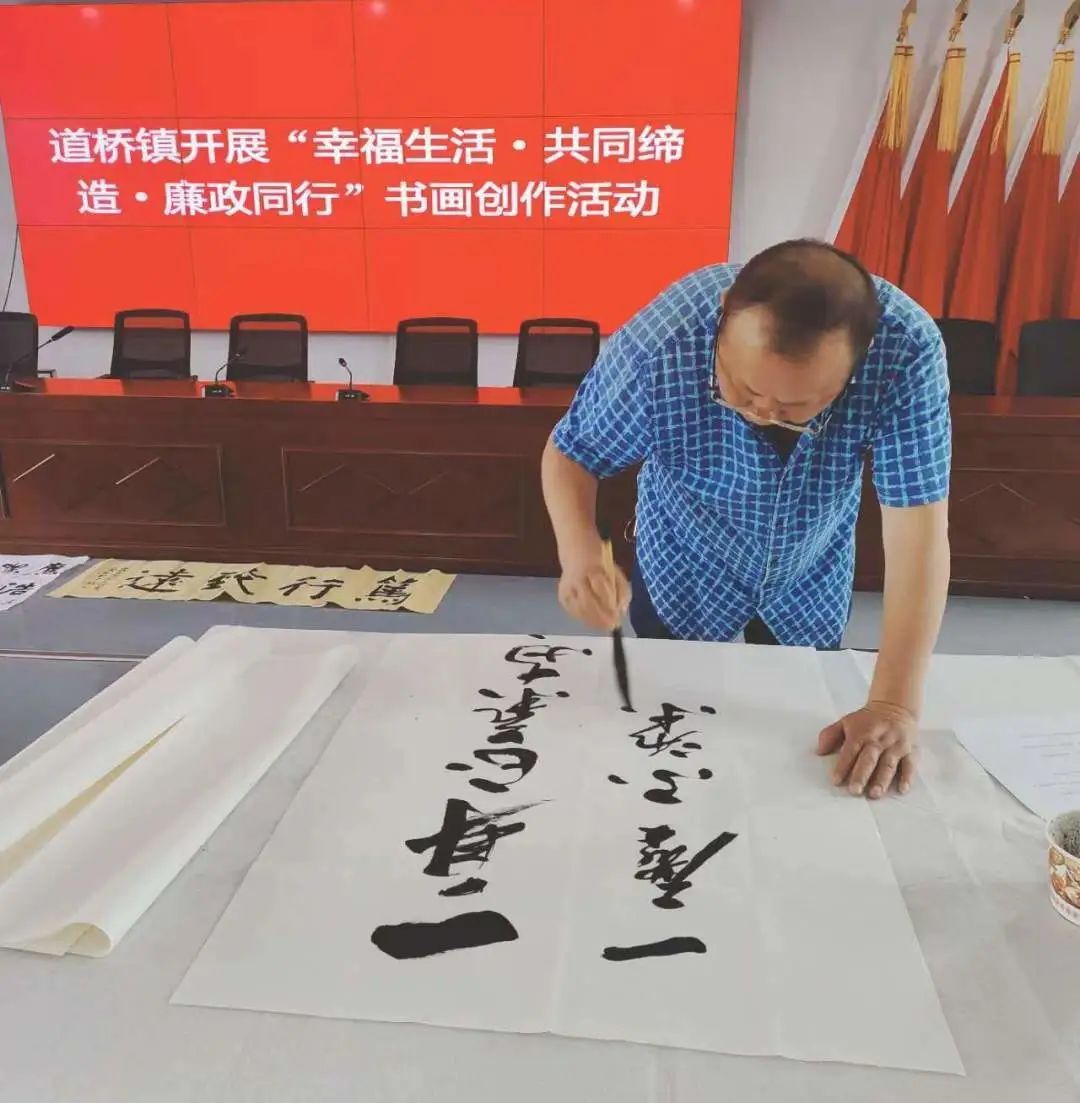 道桥镇开展“幸福生活·共同缔
造·廉政同行”书画创作活动
篤行致遠
一身
一塵不染